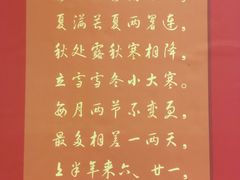 夏满芒夏两暑连。
秋处露秋寒相降。
立雪雪冬小大寒。
每月两节不变更，
最多相差一两天，
上半年来六、廿一，